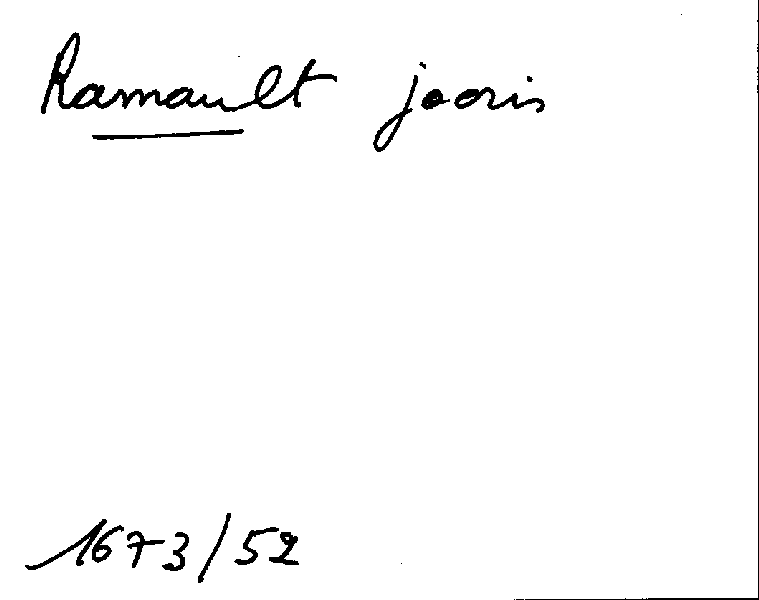 Ramault jooris
1673/52